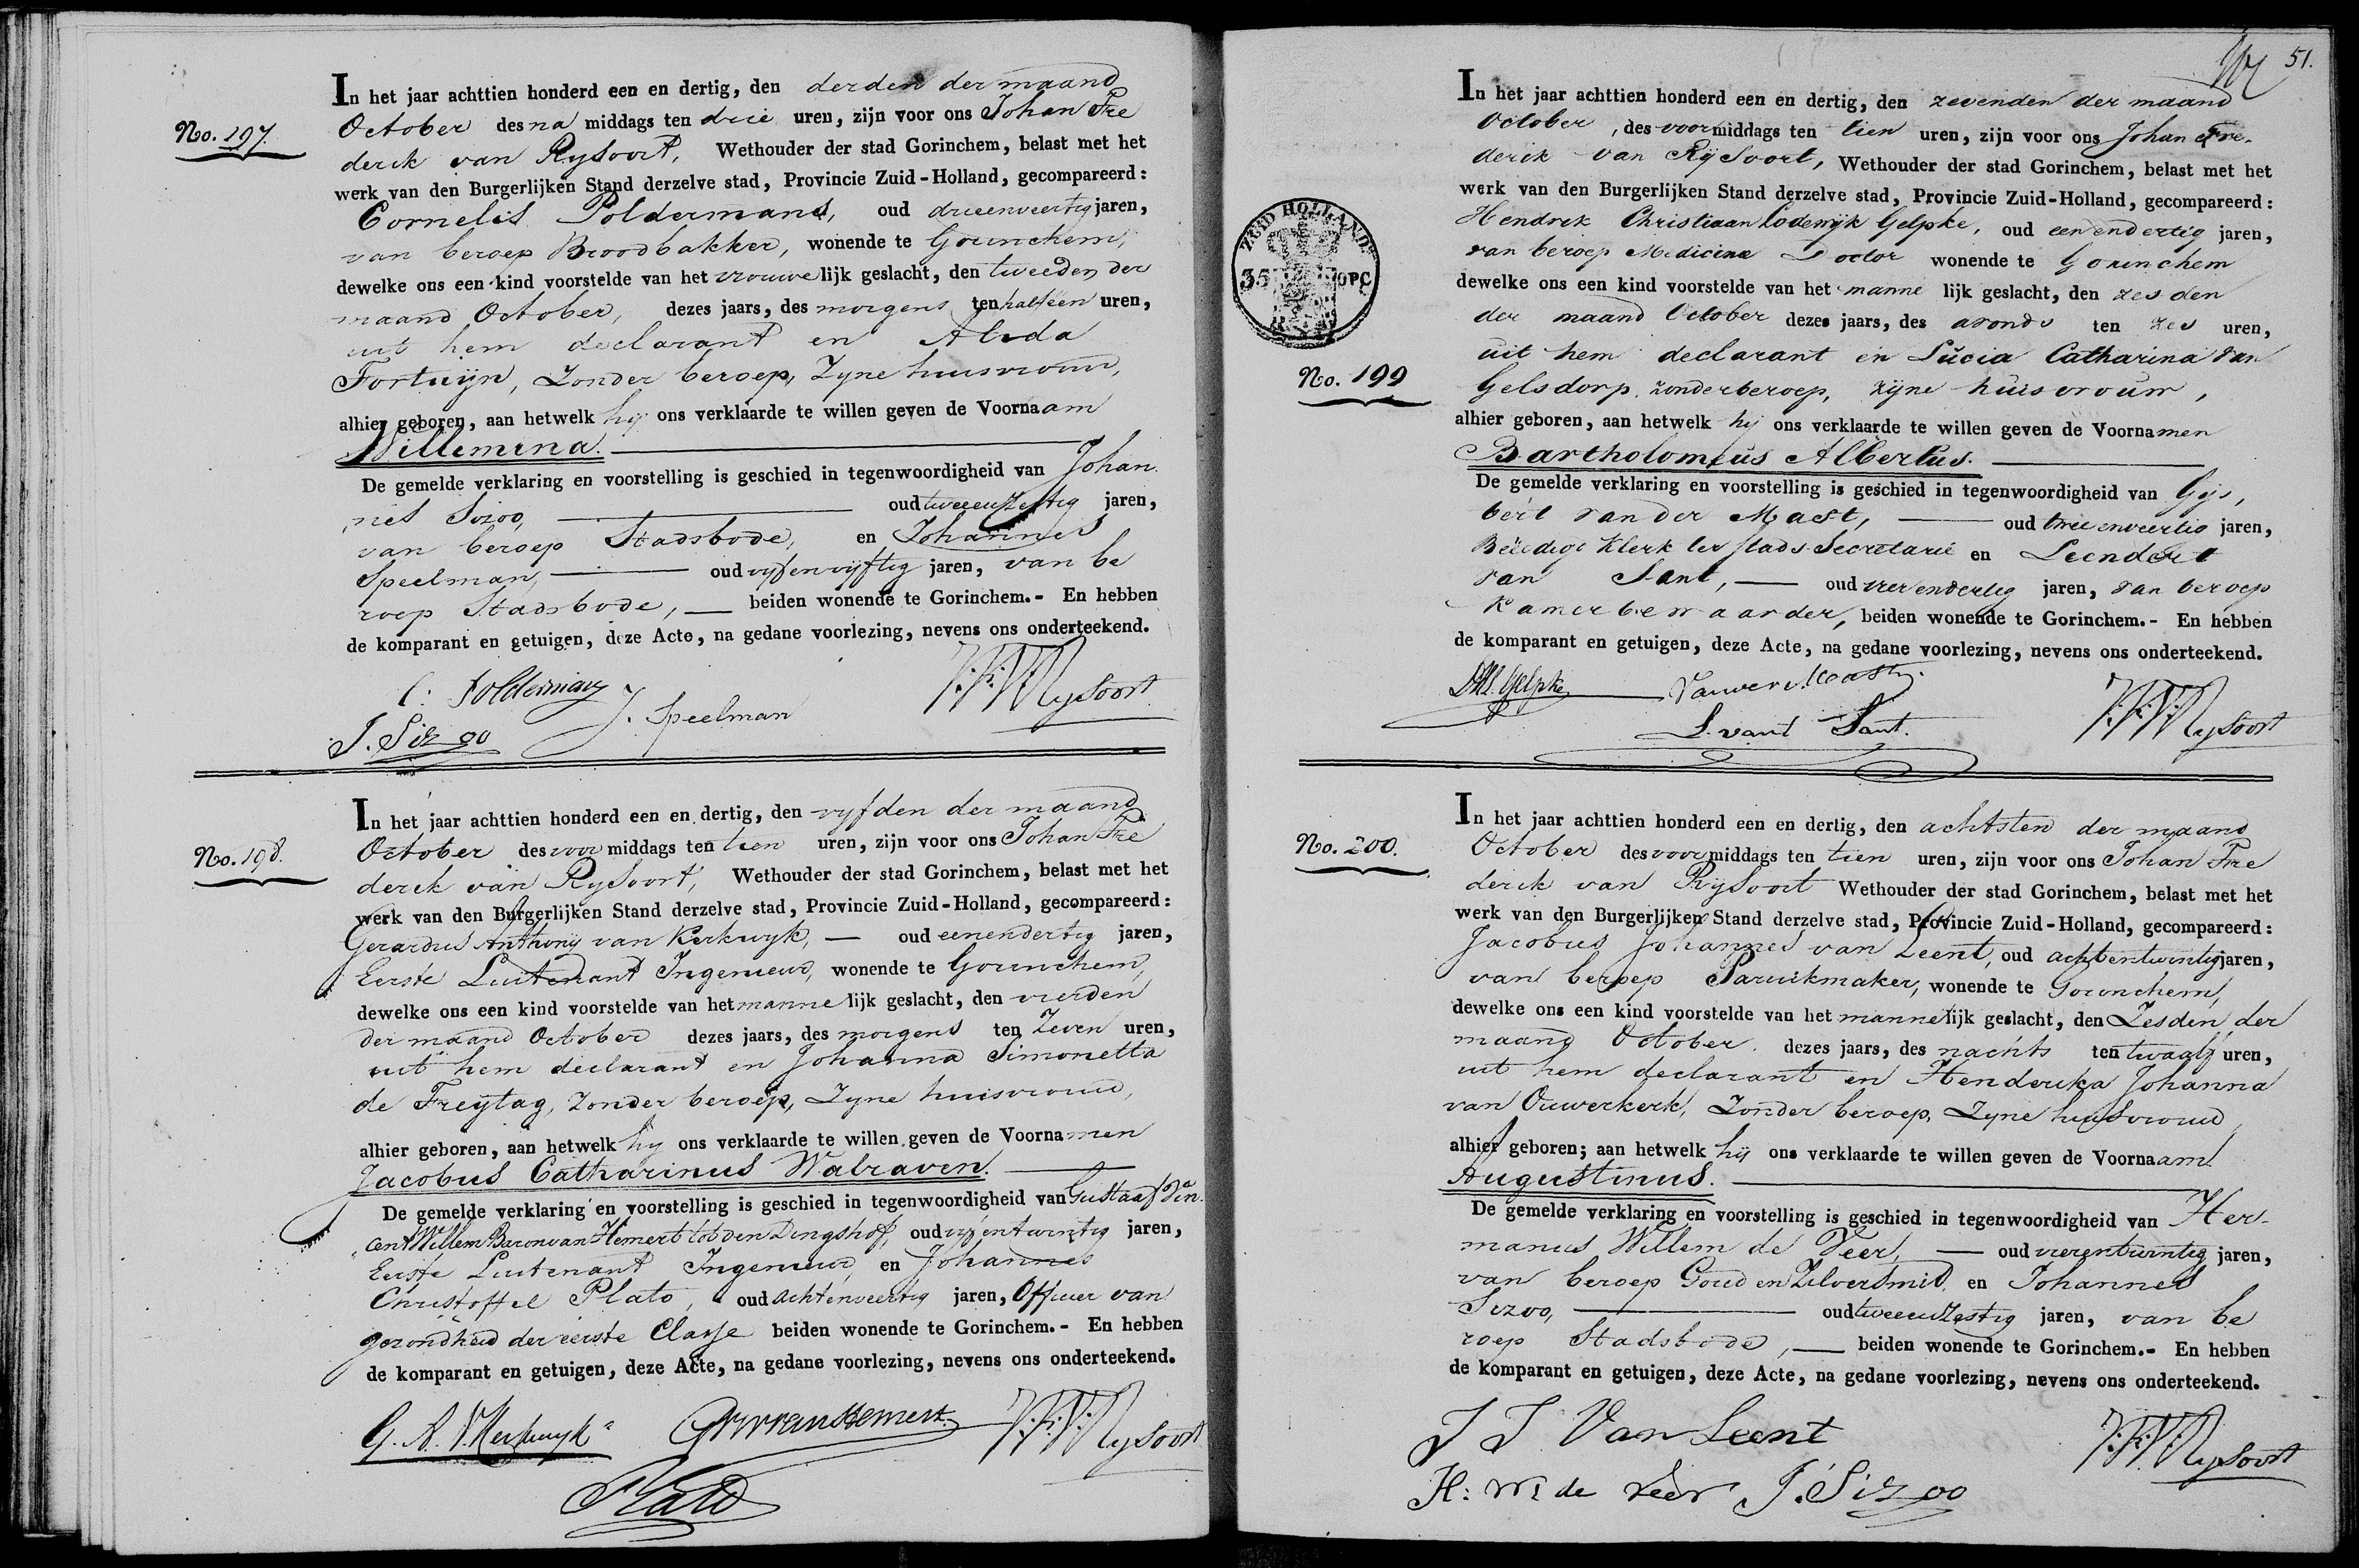 No. 197.
In het jaar achttien honderd een en dertig, den derden der maand
October des na middags ten drie uren, zijn voor ons Johan Fre
derik van Rysoort, Wethouder der stad Gorinchem, belast met het
werk van den Burgerlijken Stand derzelve stad, Provincie Zuid-Holland, gecompareerd:
Cornelis Poldermans, oud drieenveertig jaren,
van beroep Broodbakker, wonende te Gorinchem,
dewelke ons een kind voorstelde van het vrouwelijk geslacht, den tweeden der
maand October, dezes jaars, des morgens ten half een uren,
uit hem declarant en Alida
Fortuijn, Zonder beroep, Zyne huisvrouw,
alhier geboren, aan hetwelk hij ons verklaarde te willen geven de Voornaam
Willemina.
De gemelde verklaring en voorstelling is geschied in tegenwoordigheid van Johan
nes Sizoo, oud tweeenzestig jaren,
van beroep Stadsbode, en Johannes
Speelman, oud vyfenvyftig jaren, van be
roep Stadsbode, beiden wonende te Gorinchem.- En hebben
de komparant en getuigen, deze Acte, na gedane voorlezing, nevens ons onderteekend.
C: Polderman J.F.V. Rysoort
J. Speelman
J. Sizoo
No. 198.
In het jaar achttien honderd een en dertig, den vyfden der maand
October des voor middags ten tien uren, zijn voor ons Johan Fre
derik van Rysoort, Wethouder der stad Gorinchem, belast met het
werk van den Burgerlijken Stand derzelve stad, Provincie Zuid-Holland, gecompareerd:
Gerardus Anthony van Kerkwyk, oud eenendertig jaren,
Eerste Luitenant Ingenieur, wonende te Gorinchem,
dewelke ons een kind voorstelde van het mannelijk geslacht, den vierden
der maand October dezes jaars, des morgens ten Zeven uren,
uit hem declarant en Johanna Simonetta
de Freytag, Zonder beroep, Zyne huisvrouw,
alhier geboren, aan hetwelk hy ons verklaarde te willen geven de Voornamen
Jacobus Catharinus Walraven.
De gemelde verklaring en voorstelling is geschied in tegenwoordigheid van Gustaaf Vin
cent Willem Baron van Hemert tot den Dingshof, oud vyfentwintig jaren,
Eerste Luitenant Ingenieur, en Johannes
Christoffel Plato, oud achtenveertig jaren, Officier van
gezondheid der eerste Classe beiden wonende te Gorinchem.- En hebben
de komparant en getuigen, deze Acte, na gedane voorlezing, nevens ons onderteekend.
G. A. V. Kerkwyk GVWvanHemert. J.F.V. Rysoort
Plato
51.
ZUID HOLLAND
35 OPC
No. 199
In het jaar achttien honderd een en dertig, den zevenden der maand
October, des voormiddags ten tien uren, zijn voor ons Johan Fre-
derik van Rijsoort, Wethouder der stad Gorinchem, belast met het
werk van den Burgerlijken Stand derzelve stad, Provincie Zuid-Holland, gecompareerd:
Hendrik Christiaan Lodewijk Gelpke, oud eenendertig jaren,
van beroep Medicine Doctor wonende te Gorinchem
dewelke ons een kind voorstelde van het mannelijk geslacht, den zesden
der maand October dezes jaars, des avonds ten zes uren,
uit hem declarant en Lucia Catharina van
Gelsdorp, zonder beroep, zijne huisvrouw,
alhier geboren, aan hetwelk hij ons verklaarde te willen geven de Voornamen
Bartholomeus Albertus.
De gemelde verklaring en voorstelling is geschied in tegenwoordigheid van Gijs,
bert van der Mast, oud tweeenveertig jaren,
Beëedigd Klerk ter stads Secretarie en Leendert
van Sant, oud vierendertig jaren, van beroep
Kamerbewaarder, beiden wonende te Gorinchem.- En hebben
de komparant en getuigen, deze Acte, na gedane voorlezing, nevens ons onderteekend.
Gelpke Vander Mast
L. vant Sant. J.F.V. Rysoort
No. 200.
In het jaar achttien honderd een en dertig, den achtsten der maand
October des voormiddags ten tien uren, zijn voor ons Johan Fre
derik van Rijsoort Wethouder der stad Gorinchem, belast met het
werk van den Burgerlijken Stand derzelve stad, Provincie Zuid-Holland, gecompareerd:
Jacobus Johannes van Leent, oud achtentwintig jaren,
van beroep Paruikmaker, wonende te Gorinchem,
dewelke ons een kind voorstelde van het mannelijk geslacht, den Zesden der
maand October dezes jaars, des nachts ten twaalf uren,
uit hem declarant en Henderika Johanna
van Ouwerkerk, Zonder beroep, Zyne huisvrouw
alhier geboren; aan hetwelk hij ons verklaarde te willen geven de Voornaam
Augustinus.
De gemelde verklaring en voorstelling is geschied in tegenwoordigheid van Her-
manus Willem de Veer, oud vierentwintig jaren,
van beroep Goud en Zilversmid, en Johannes
Sizoo, oud tweeenzestig jaren, van be
roep Stadsbode, beiden wonende te Gorinchem.- En hebben
de komparant en getuigen, deze Acte, na gedane voorlezing, nevens ons onderteekend.
J J Van Leent J.F.V. Rysoort
H: W: de Veer J. Sizoo